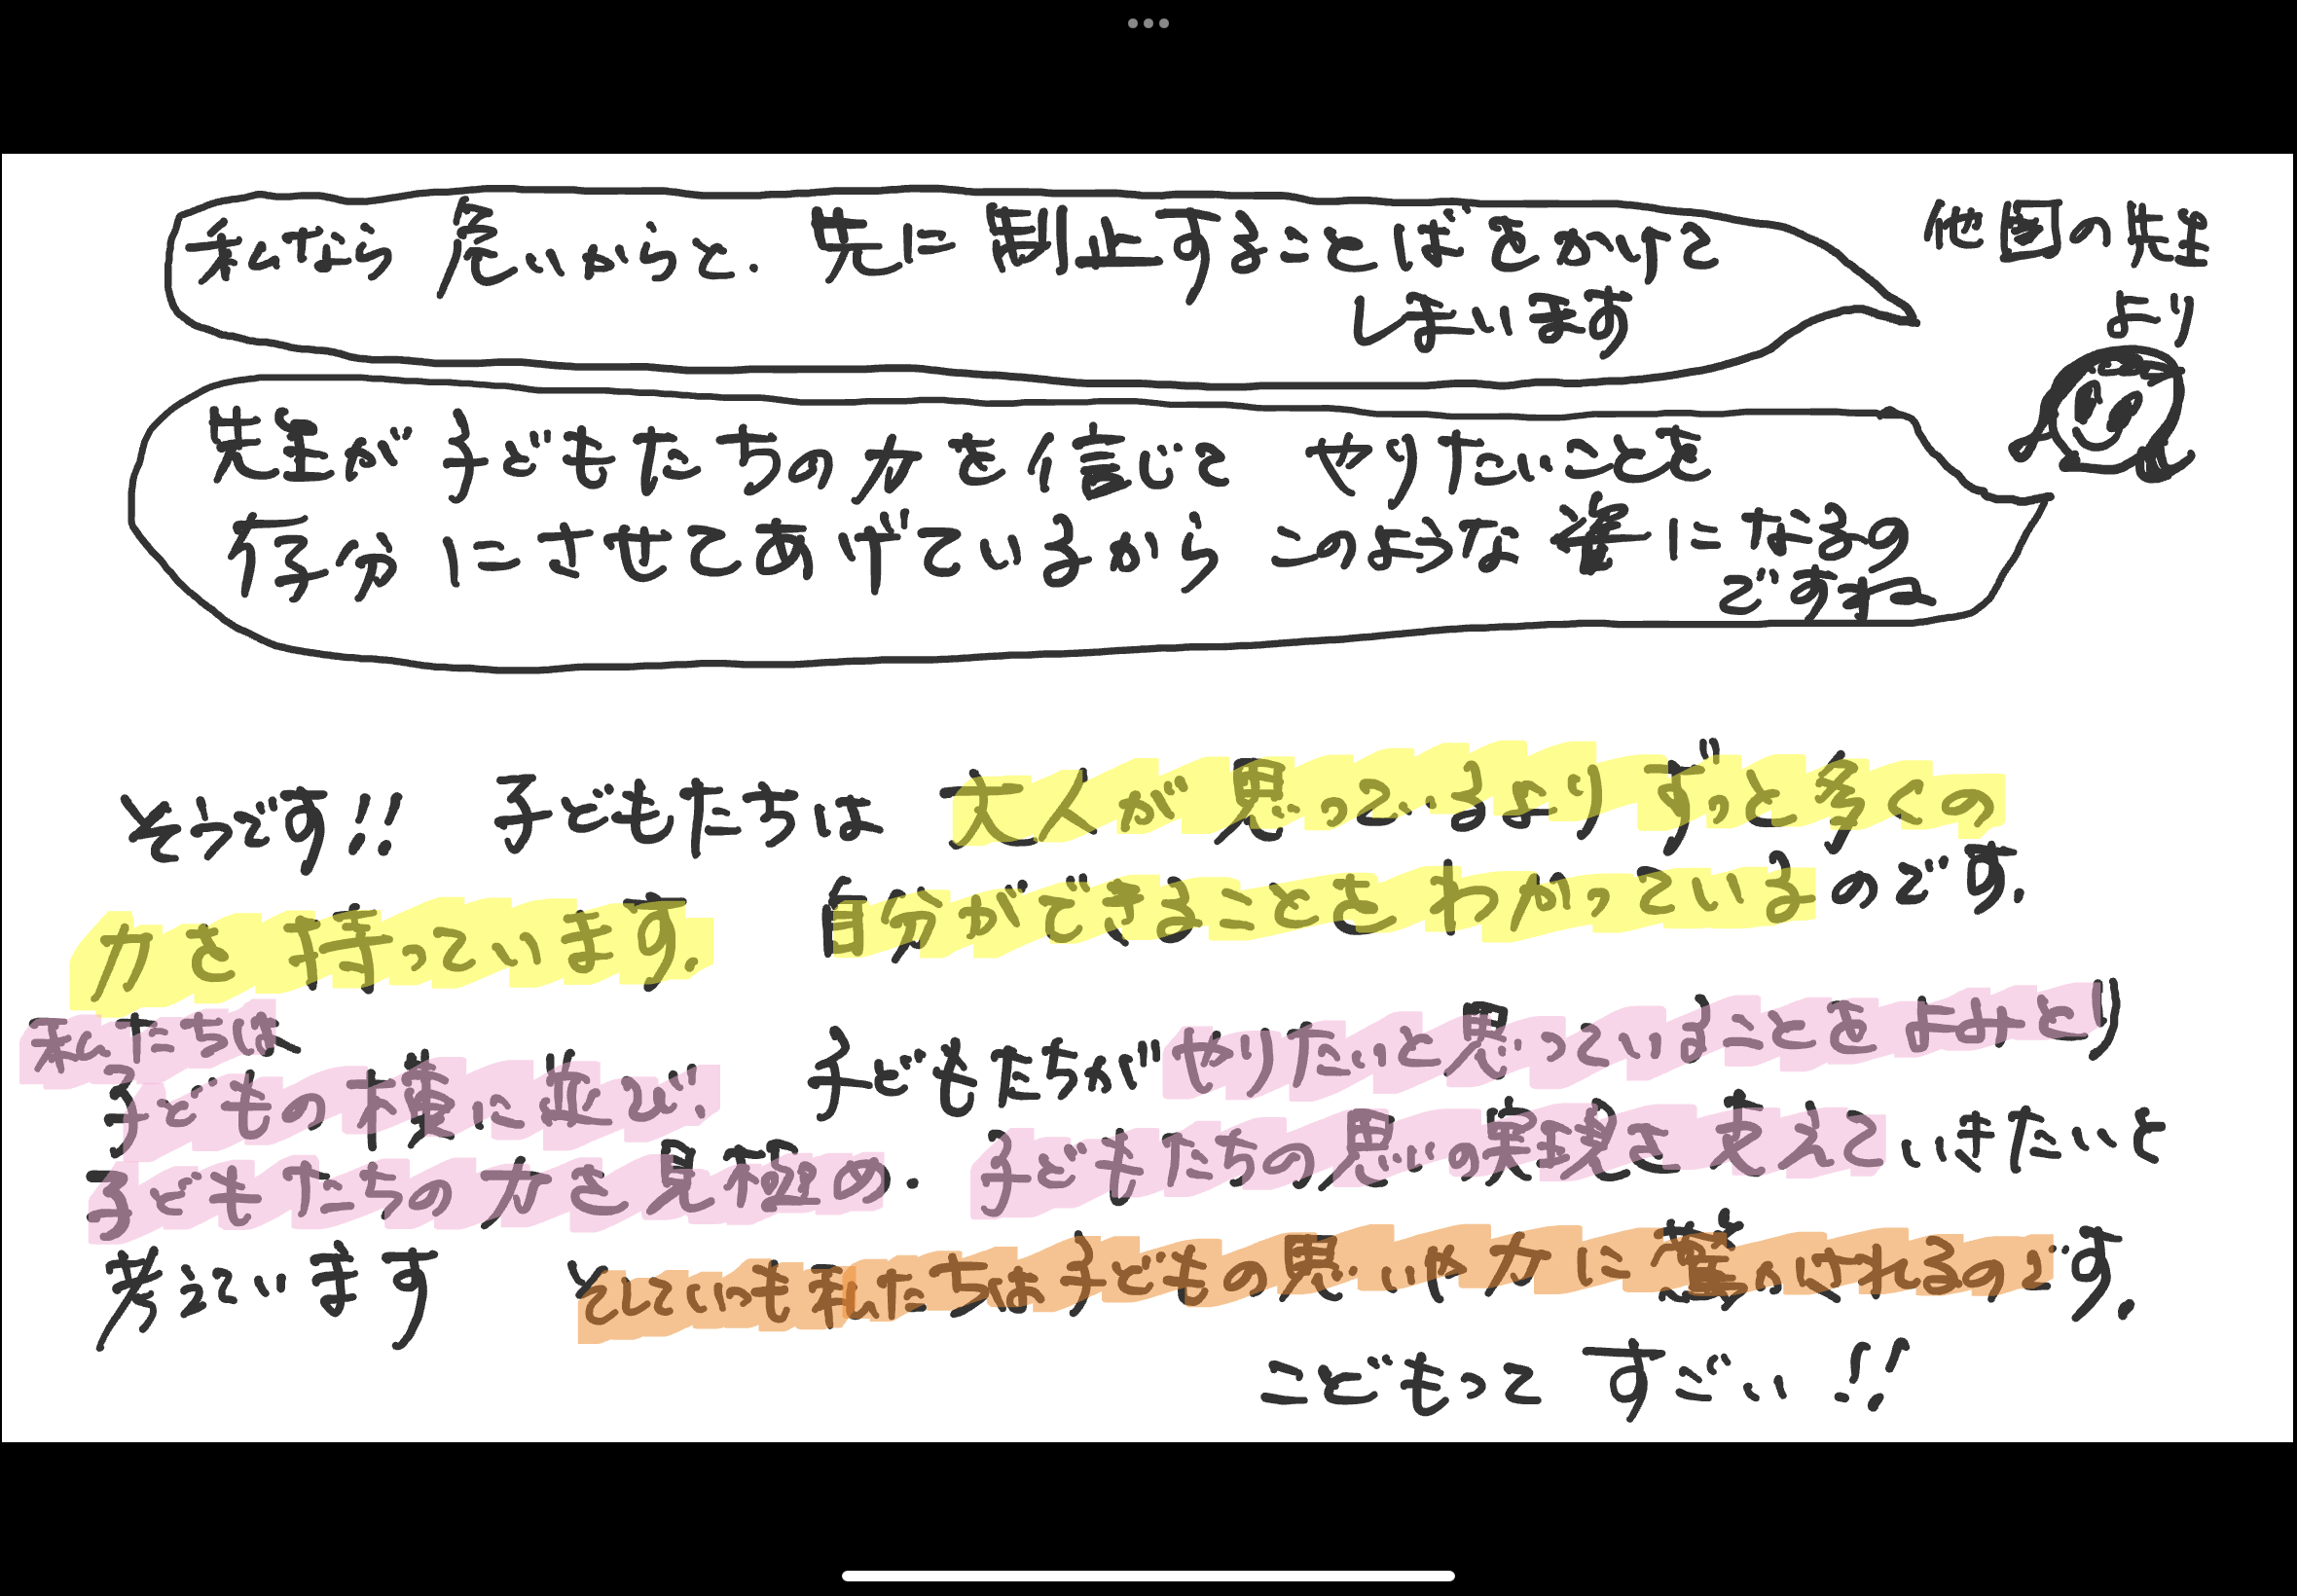 私なら危いからと、先に制止することばをかけて
しまいます
他園の先生
より
先生が子どもたちの力を信じて やりたいことを
存分にさせてあげているから このような姿になるの
ですね
そうです!! 子どもたちは 大人が思っているよりずっと多くの
力を持っています。 自分ができることをわかっているのです。
私たちは、
子どもの横に並び、 子どもたちがやりたいと思っていることをよみとり
子どもたちの力を見極め、 子どもたちの思いの実現を支えていきたいと
考えています そしていつも私たちは子どもの思いや力に驚かされるのです。
こどもって すごい!!